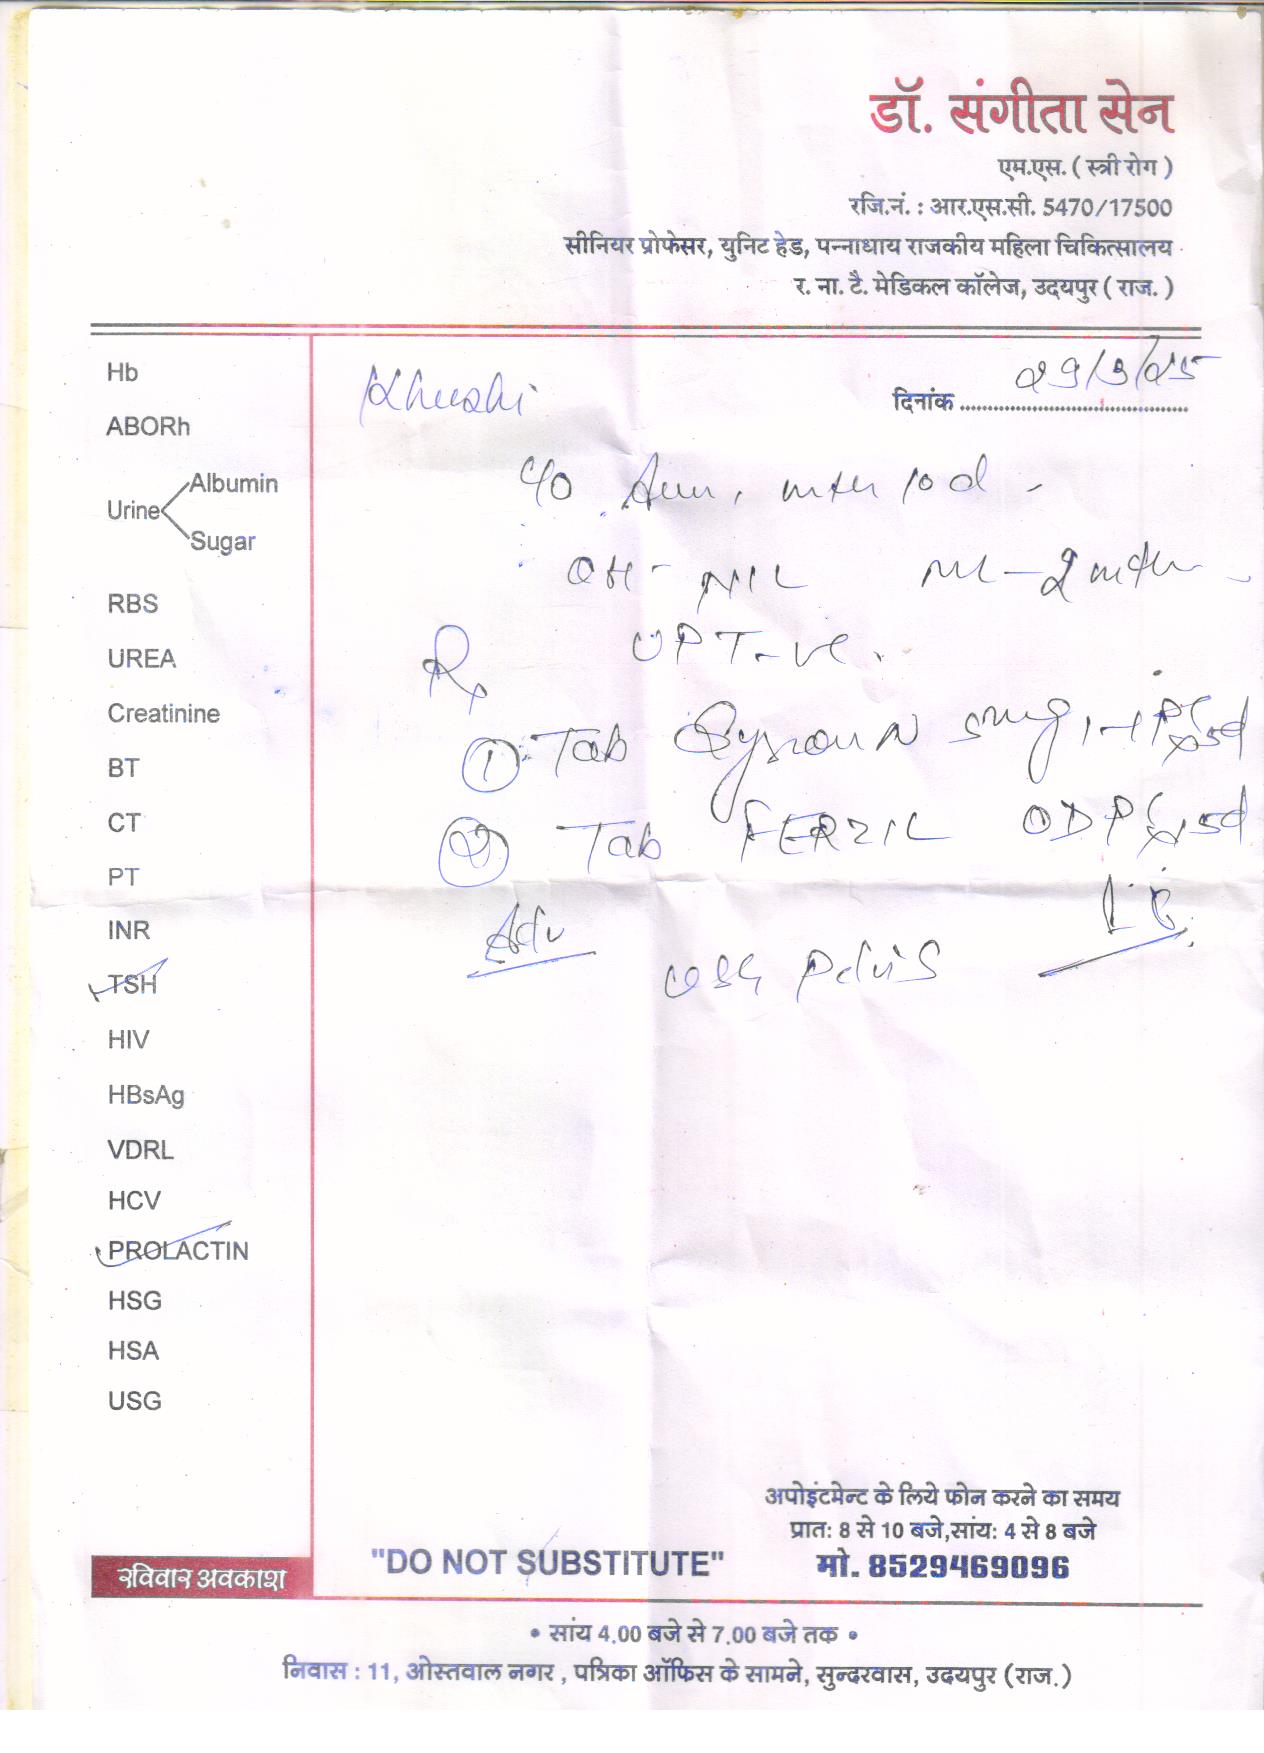 डॉ. संगीता सेन
एम.एस. ( स्त्री रोग )
रजि.नं. : आर.एस.सी. 5470/17500
सीनियर प्रोफेसर, युनिट हेड, पन्नाधाय राजकीय महिला चिकित्सालय
र. ना. टै. मेडिकल कॉलेज, उदयपुर ( राज. )
Khushi
दिनांक 29/3/25
C/O
OH - NIL ML - 2 mth
UPT -ve.
Rx
① Tab 5mg
② Tab FERZIL OD
Adv
USG Pelvis
Hb
ABORh
Urine Albumin
Sugar
RBS
UREA
Creatinine
BT
CT
PT
INR
TSH
HIV
HBsAg
VDRL
HCV
PROLACTIN
HSG
HSA
USG
रविवार अवकाश
"DO NOT SUBSTITUTE"
अपोइंटमेन्ट के लिये फोन करने का समय
प्रात: 8 से 10 बजे,सांय: 4 से 8 बजे
मो. 8529469096
• सांय 4.00 बजे से 7.00 बजे तक •
निवास : 11, ओस्तवाल नगर , पत्रिका ऑफिस के सामने, सुन्दरवास, उदयपुर (राज.)